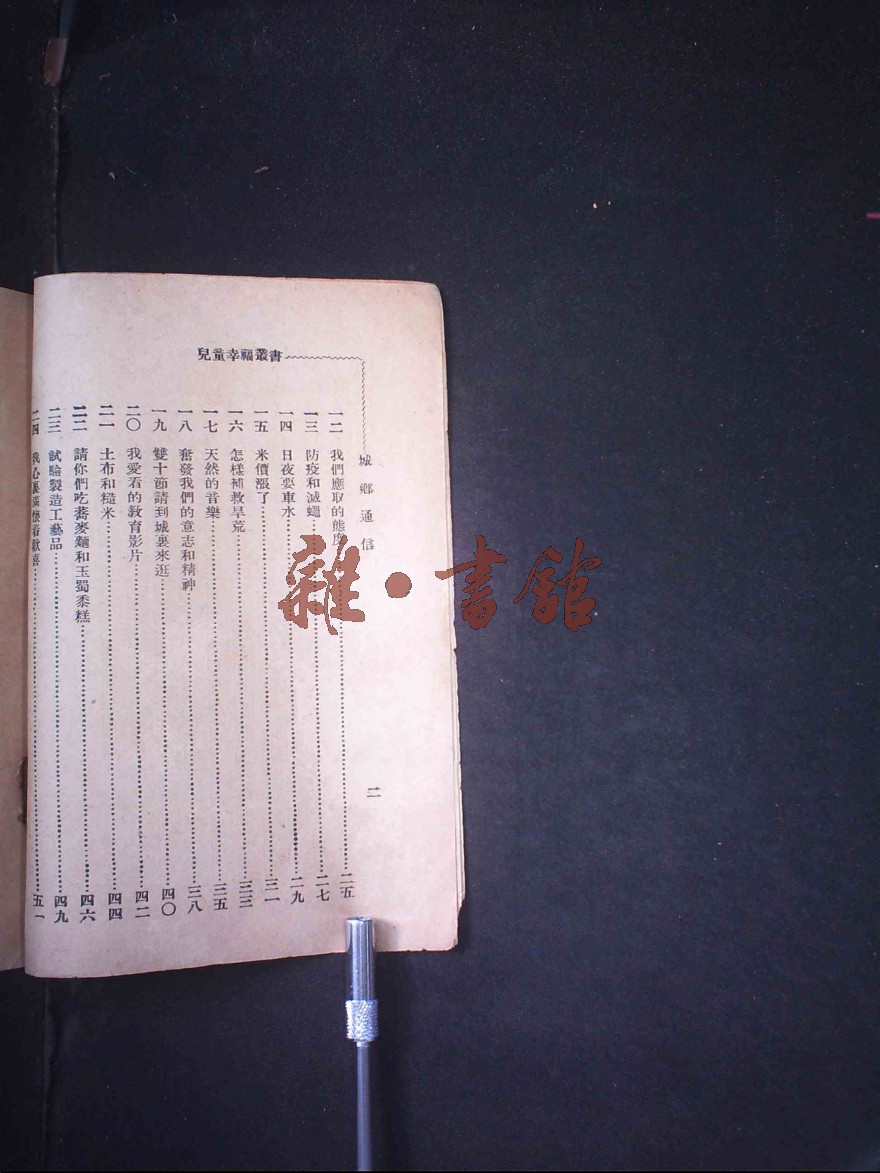 兒童幸福叢書
城鄉通信
二
一二 我們應取的態度 二五
一三 防疫和滅蠅 二七
一四 日夜要車水 二九
一五 米價漲了 三一
一六 怎樣補救旱荒 三三
一七 天然的音樂 三五
一八 奮發我們的意志和精神 三八
一九 雙十節請到城裏來逛 四〇
二〇 我愛看的教育影片 四二
二一 土布和糙米 四四
二二 請你們吃蕎麥麵和玉蜀黍糕 四六
二三 試驗製造工藝品 四九
二四 我心裏滿懷着歡喜 五一
雜·書館